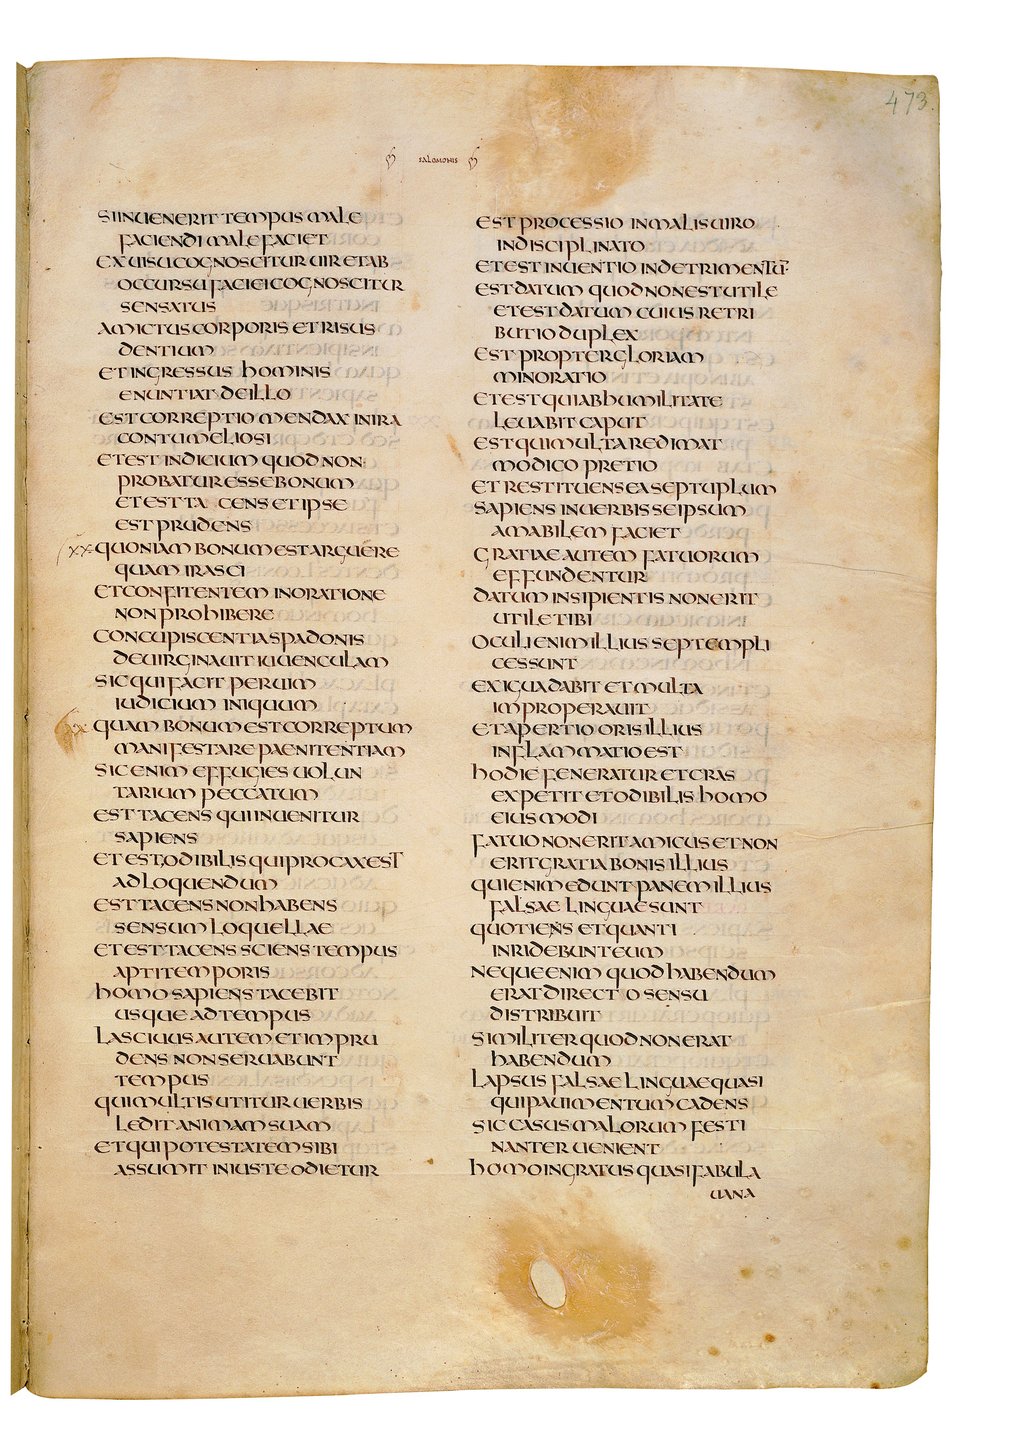 473.
SALOMONIS
SIINUENERIT TEMPUS MALE
FACIENDI MALE FACIET
EX UISU COGNOSCITUR UIR ET AB
OCCURSU FACIEI COGNOSCITUR
SENSATUS
AMICTUS CORPORIS ET RISUS
DENTIUM
ET INGRESSUS HOMINIS
ENUNTIAT DE ILLO
EST CORREPTIO MENDAX IN IRA
CONTUMELIOSI
ET EST INDICIUM QUOD NON
PROBATUR ESSE BONUM
ET EST TA CENS ET IPSE
EST PRUDENS
XX QUONIAM BONUM EST ARGUERE
QUAM IRASCI
ET CONFITENTEM IN ORATIONE
NON PROHIBERE
CONCUPISCENTIA SPADONIS
DEUIRGINAUIT IUUENCULAM
SIC QUI FACIT PER UIM
IUDICIUM INIQUUM
QUAM BONUM EST CORREPTUM
MANIFESTARE PAENITENTIAM
SIC ENIM EFFUGIES UOLUN
TARIUM PECCATUM
EST TACENS QUI INUENITUR
SAPIENS
ET EST ODIBILIS QUI PROCAX EST
AD LOQUENDUM
EST TACENS NON HABENS
SENSUM LOQUELLAE
ET EST TACENS SCIENS TEMPUS
APTI TEMPORIS
HOMO SAPIENS TACEBIT
USQUE AD TEMPUS
LASCIUUS AUTEM ET IMPRU
DENS NON SERUABUNT
TEMPUS
QUI MULTIS UTITUR UERBIS
LEDIT ANIMAM SUAM
ET QUI POTESTATEM SIBI
ASSUMIT INIUSTE ODIETUR
EST PROCESSIO IN MALIS UIRO
INDISCIPLINATO
ET EST INUENTIO IN DETRIMENTŪ
EST DATUM QUOD NON EST UTILE
ET EST DATUM CUIUS RETRI
BUTIO DUPLEX
EST PROPTER GLORIAM
MINORATIO
ET EST QUI AB HUMILITATE
LEUABIT CAPUT
EST QUI MULTA REDIMAT
MODICO PRETIO
ET RESTITUENS EA SEPTUPLUM
SAPIENS IN UERBIS SE IPSUM
AMABILEM FACIET
GRATIAE AUTEM FATUORUM
EFFUNDENTUR
DATUM INSIPIENTIS NON ERIT
UTILE TIBI
OCULI ENIM ILLIUS SEPTEMPLI
CES SUNT
EXIGUA DABIT ET MULTA
IMPROPERAUIT
ET APERTIO ORIS ILLIUS
INFLAMMATIO EST
HODIE FENERATUR ET CRAS
EXPETIT ET ODIBILIS HOMO
EIUSMODI
FATUO NON ERIT AMICUS ET NON
ERIT GRATIA BONIS ILLIUS
QUI ENIM EDUNT PANEM ILLIUS
FALSAE LINGUAE SUNT
QUOTIENS ET QUANTI
INRIDEBUNT EUM
NEQUE ENIM QUOD HABENDUM
ERAT DIRECT O SENSU
DISTRIBUIT
SIMILITER QUOD NON ERAT
HABENDUM
LAPSUS FALSAE LINGUAE QUASI
QUI PAUIMENTUM CADENS
SIC CASUS MALORUM FESTI
NANTER UENIENT
HOMO INGRATUS QUASI FABULA
UANA